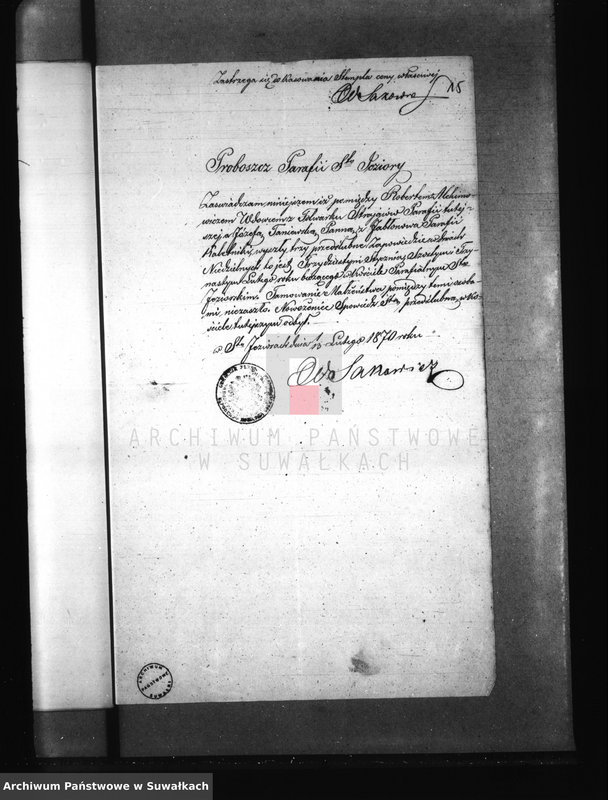 Zastrzega się do kasowania Stempla ceny właściwej
15
Proboszcz Parafii Sto Jeziory
Zaświadczam niniejszem iż pomiędzy Robertem
Wdowcem z Folwarku Parafii tutej-
szej a Józefą Panną z Jabłonowa Parafii
wyszły trzy przedślubne Zapowiedzie w dniach
Niedzielnych to jest Trzydziestym Stycznia Szóstym i Trzy-
nastym Lutego roku bieżącego w Kościele Parafialnym Sto
Jeziorskim. Tamowanie Małżeństwa pomiędzy temi osoba-
mi niezaszło. Nowożeniec Spowiedź Stą przedślubną w Ko-
ściele tutejszym odbył.
w Sto Jeziorach dnia 1/13 Lutego 1870 roku
Sakowicz
ARCHIWUM PAŃSTWOWE
W SUWAŁKACH
ARCHIWUM PAŃSTWOWE SUWAŁKI
Archiwum Państwowe w Suwałkach